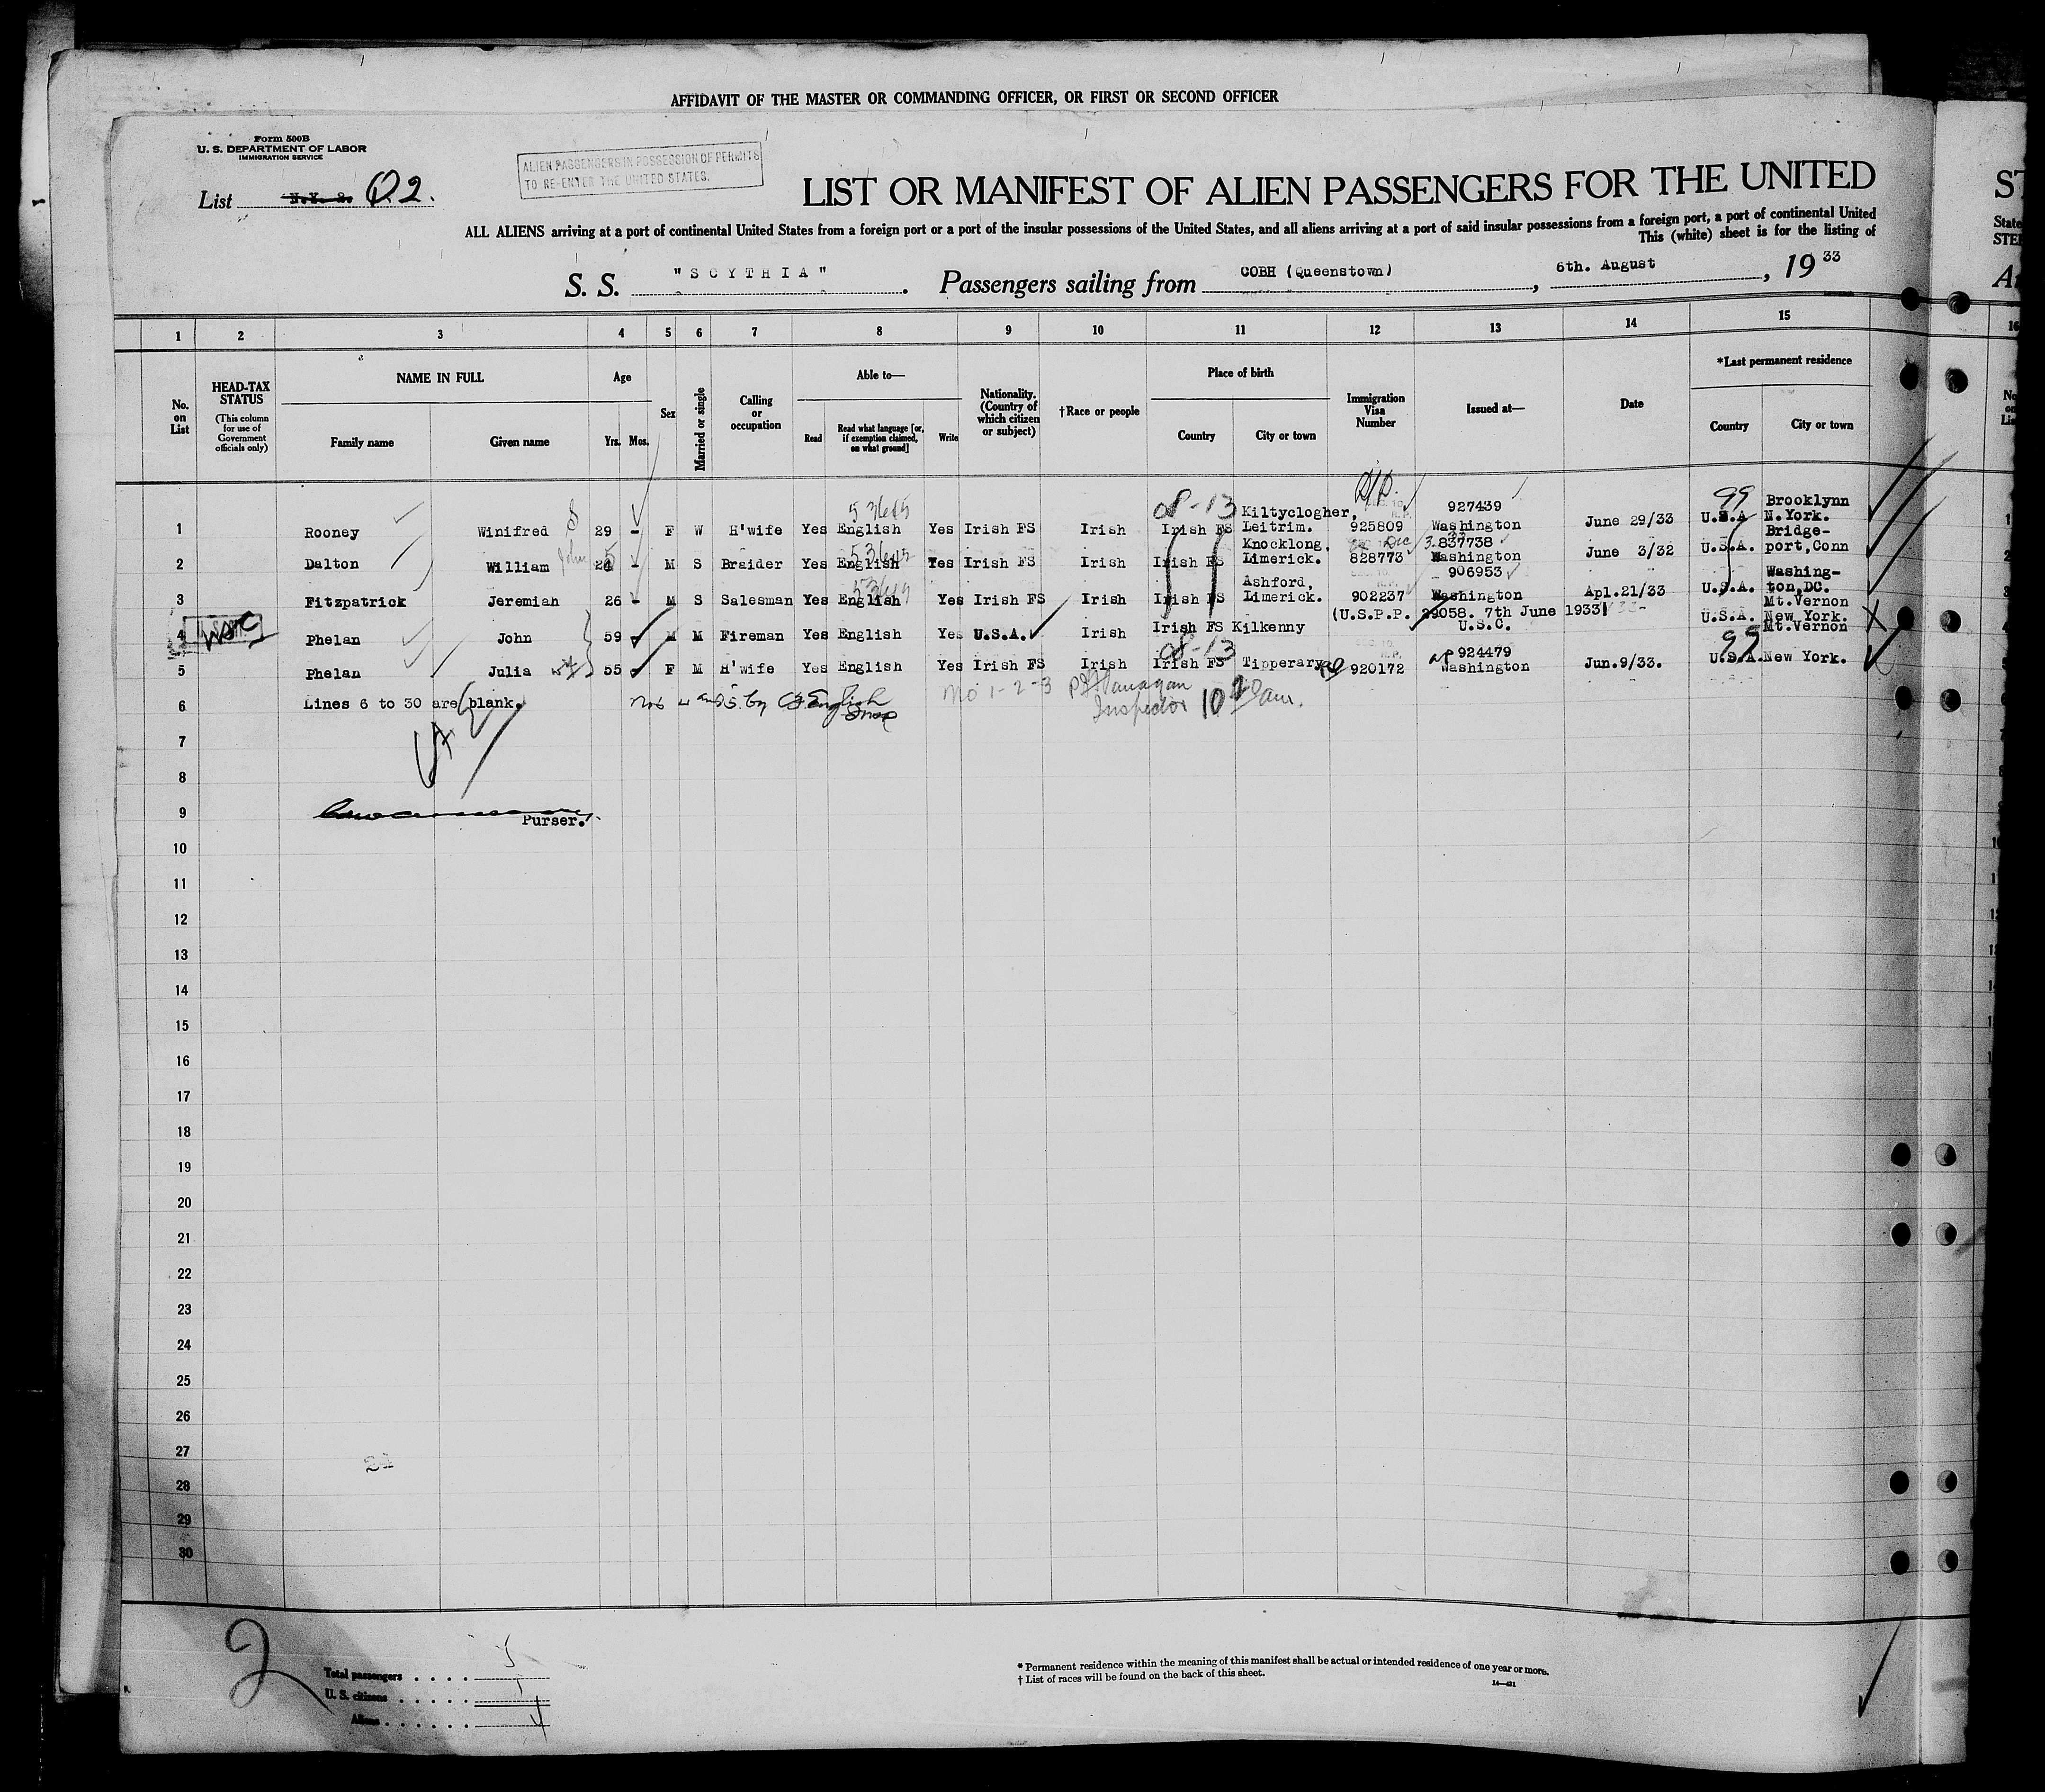 AFFIDAVIT OF THE MASTER OR COMMANDING OFFICER, OR FIRST OR SECOND OFFICER
Form 500B
U. S. DEPARTMENT OF LABOR
IMMIGRATION SERVICE
List N.Y. 2. Q2.
ALIEN PASSENGERS IN POSSESSION OF PERMITS
TO RE-ENTER THE UNITED STATES.
LIST OR MANIFEST OF ALIEN PASSENGERS FOR THE UNITED
ALL ALIENS arriving at a port of continental United States from a foreign port or a port of the insular possessions of the United States, and all aliens arriving at a port of said insular possessions from a foreign port, a port of continental United
This (white) sheet is for the listing of
S. S. "SCYTHIA". Passengers sailing from COBH (Queenstown), 6th. August, 1933
1 2 3 4 5 6 7 8 9 10 11 12 13 14 15
No. on List
HEAD-TAX STATUS
(This column for use of Government officials only)
NAME IN FULL
Family name Given name
Age
Yrs. Mos.
Sex
Married or single
Calling or occupation
Able to—
Read
Read what language [or, if exemption claimed, on what ground]
Write
Nationality. (Country of which citizen or subject)
†Race or people
Place of birth
Country City or town
Immigration Visa Number
Issued at—
Date
*Last permanent residence
Country City or town
1 Rooney Winifred 29 - F W H'wife Yes English Yes Irish FS Irish Irish FS Kiltyclogher, Leitrim. 925809 927439 Washington June 29/33 U.S.A Brooklynn N.York.
2 Dalton William John M S Braider Yes English Yes Irish FS Irish Irish FS Knocklong, Limerick. 828773 837738 Washington June 3/32 U.S.A. Bridge-port,Conn
3 Fitzpatrick Jeremiah 26 - M S Salesman Yes English Yes Irish FS Irish Irish FS Ashford, Limerick. 902237 906953 Washington Apl.21/33 U.S.A. Washing-ton,DC.
4 Phelan John 59 - M M Fireman Yes English Yes U.S.A. Irish Irish FS Kilkenny (U.S.P.P. 29058. 7th June 1933) U.S.C. U.S.A. Mt.Vernon New York.
5 Phelan Julia 55 - F M H'wife Yes English Yes Irish FS Irish Irish FS Tipperary 920172 924479 Washington Jun.9/33. U.S.A. Mt.Vernon New York.
08-13
08-13
99
99
6 Lines 6 to 30 are blank.
Nos 4 and 5 by English
No 1-2-3 Flanagan
Inspector 10
7
8
9
Purser.
10
11
12
13
14
15
16
17
18
19
20
21
22
23
24
25
26
27
28
29
30
24
2
Total passengers . . . . 5
U. S. citizens . . . . . 1
Aliens . . . . . . 4
* Permanent residence within the meaning of this manifest shall be actual or intended residence of one year or more.
† List of races will be found on the back of this sheet.